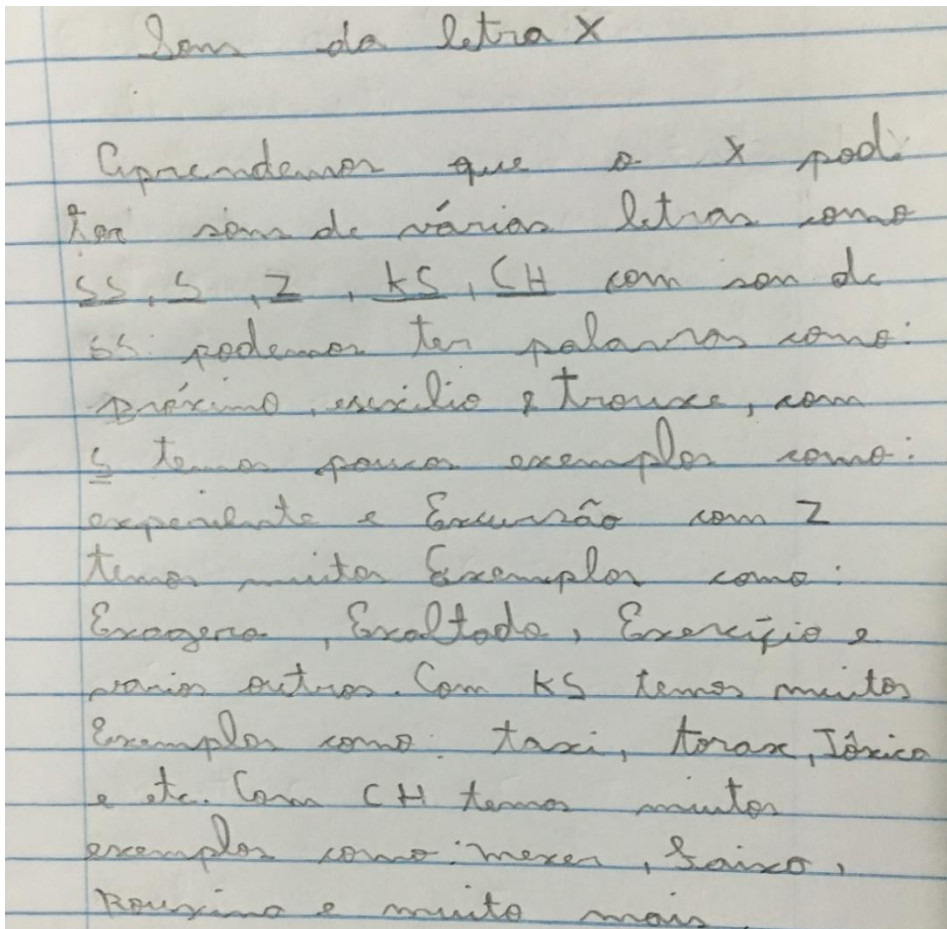 Som da letra X
Aprendemos que o X pode
ter som de várias letras como
SS, S, Z, KS, CH com som de
SS: podemos ter palavras como:
Próximo, e Trouxe, com
S temos poucos exemplos como:
experiente e Excursão com Z
temos muitos Exemplos como:
Exagero, Exaltado, Exercíçio e
varios outros. Com KS temos muitos
Exemplos como: taxi, torax, Tóxico
e etc. Com CH temos muitos
exemplos como: mexer,
e muito mais.